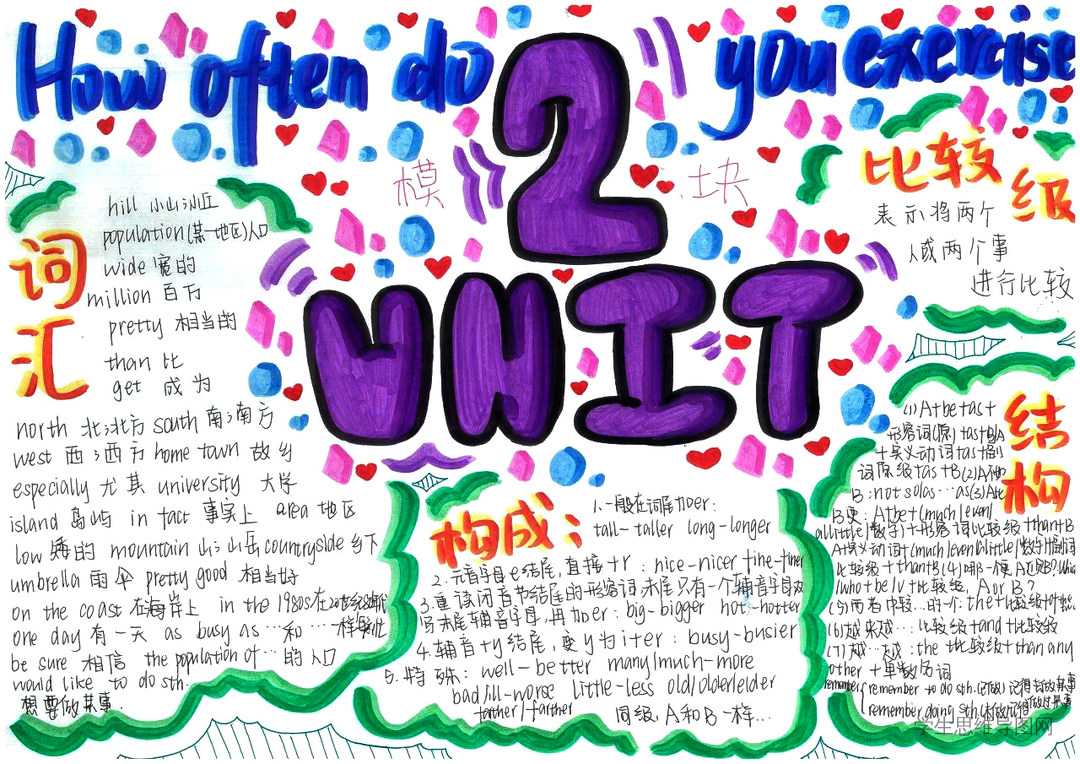 How often do you exercise
2
模 块
UNIT
词汇
hill 小山;山丘
population(某一地区)人口
wide 宽的
million 百万
pretty 相当的
than 比
get 成为
north 北;北方 south 南;南方
west 西;西方 home town 故乡
especially 尤其 university 大学
island 岛屿 in fact 事实上 area 地区
low 矮的 mountain 山;山岳 countryside 乡下
umbrella 雨伞 pretty good 相当好
on the coast 在海岸上 in the 1980s 在20世纪80年代
one day 有一天 as busy as … 和…一样繁忙
be sure 相信 the population of … 的人口
would like to do sth.
想要做某事.
构成:
1.一般在词尾加er:
tall-taller long-longer
2.元音字母e结尾,直接+r:nice-nicer fine-finer
3.重读闭音节结尾的形容词末尾只有一个辅音字母双
写末尾辅音字母,再加er:big-bigger hot-hotter
4.辅音+y结尾,变y为i+er:busy-busier
5.特殊:well-better many/much-more
bad/ill-worse little-less old/older/elder
farther/farther
同级,A和B一样…
比较级
表示将两个
人或两个事
进行比较
结构
(1)A+be+as+
形容词(原)+as+B/A
+实义动词+as+副
词原级+as+B(2)A不如
B:not so/as…as(3)A比
B更:A+be+(much/even/
a little/数字)+形容词比较级+than+B
(5)两者中较…的一个:the+比较级+of…
(6)越来越…:比较级+and+比较级
(7)越…越:the 比较级+than any
other+单数名词
remember
remember to do sth.
remember doing sth.
学生思维导图网